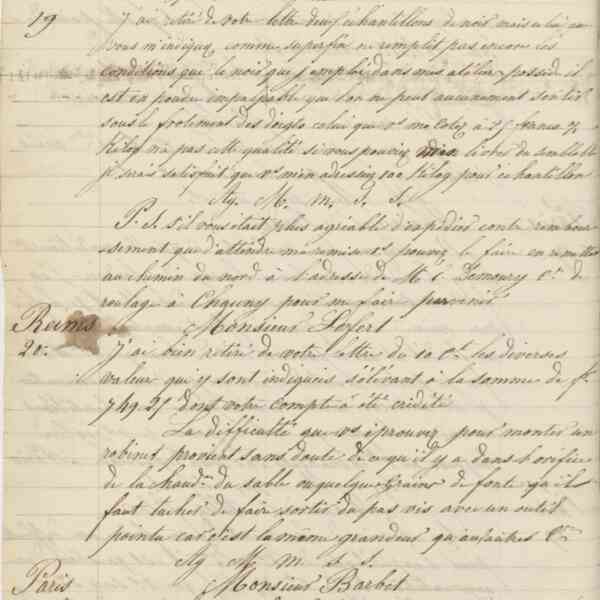 19 J'ai retiré de votre lettre deux échantillons de noir mais celui que
vous m'indiquez comme superfin ne remplit pas encore les
conditions que le noir que j'emploie dans mes atelier possède il
est en poudre impalpable qui l'on ne peut aucunement sentir
sous le frotement des doigts celui que vs me cotez à 25 francs %
Kilog n'a pas cette qualité si vous pouviez livrer du semblable
je serais satisfait que vs m'en adressiez 100 Kilog pour échantillon
Ag. M. m. S. S.
P. S. s'il vous était plus agréable d'expédier contre rembour
-sement que d'attendre ma remise vs pouvez le faire en remettant
au chemin du nord à l'adresse de M. C. Lemoury Cre. de
roulage à Chauny pour me faire parvenir
Reims Monsieur Lefert
20. J'ai bien retiré de votre lettre du 10 Ct. les diverses
valeur qui y sont indiqueis s'élévant à la somme de fr.
749.25 dont votre compte à été crédité
La difficulté que vs éprouvez pour monter un
robinet provient sans doute de ce qu'il y a dans l'orifice
de la chaudre. du sable ou quelque grains de fonte qu'il
faut tacher de faire sortir du pas vis avec un outil
pointu car c'est la même grandeur qu'aux autres
Ag M. m. S. S.
Paris Monsieur Barbet